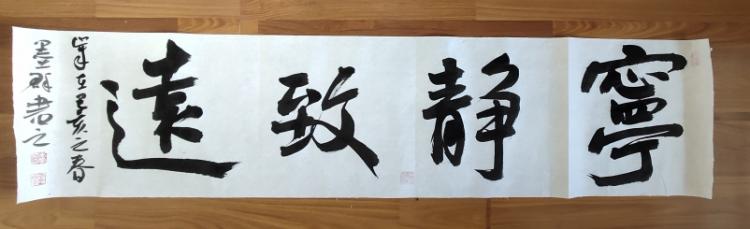 寧静致遠
歲在己亥之春
墨書之